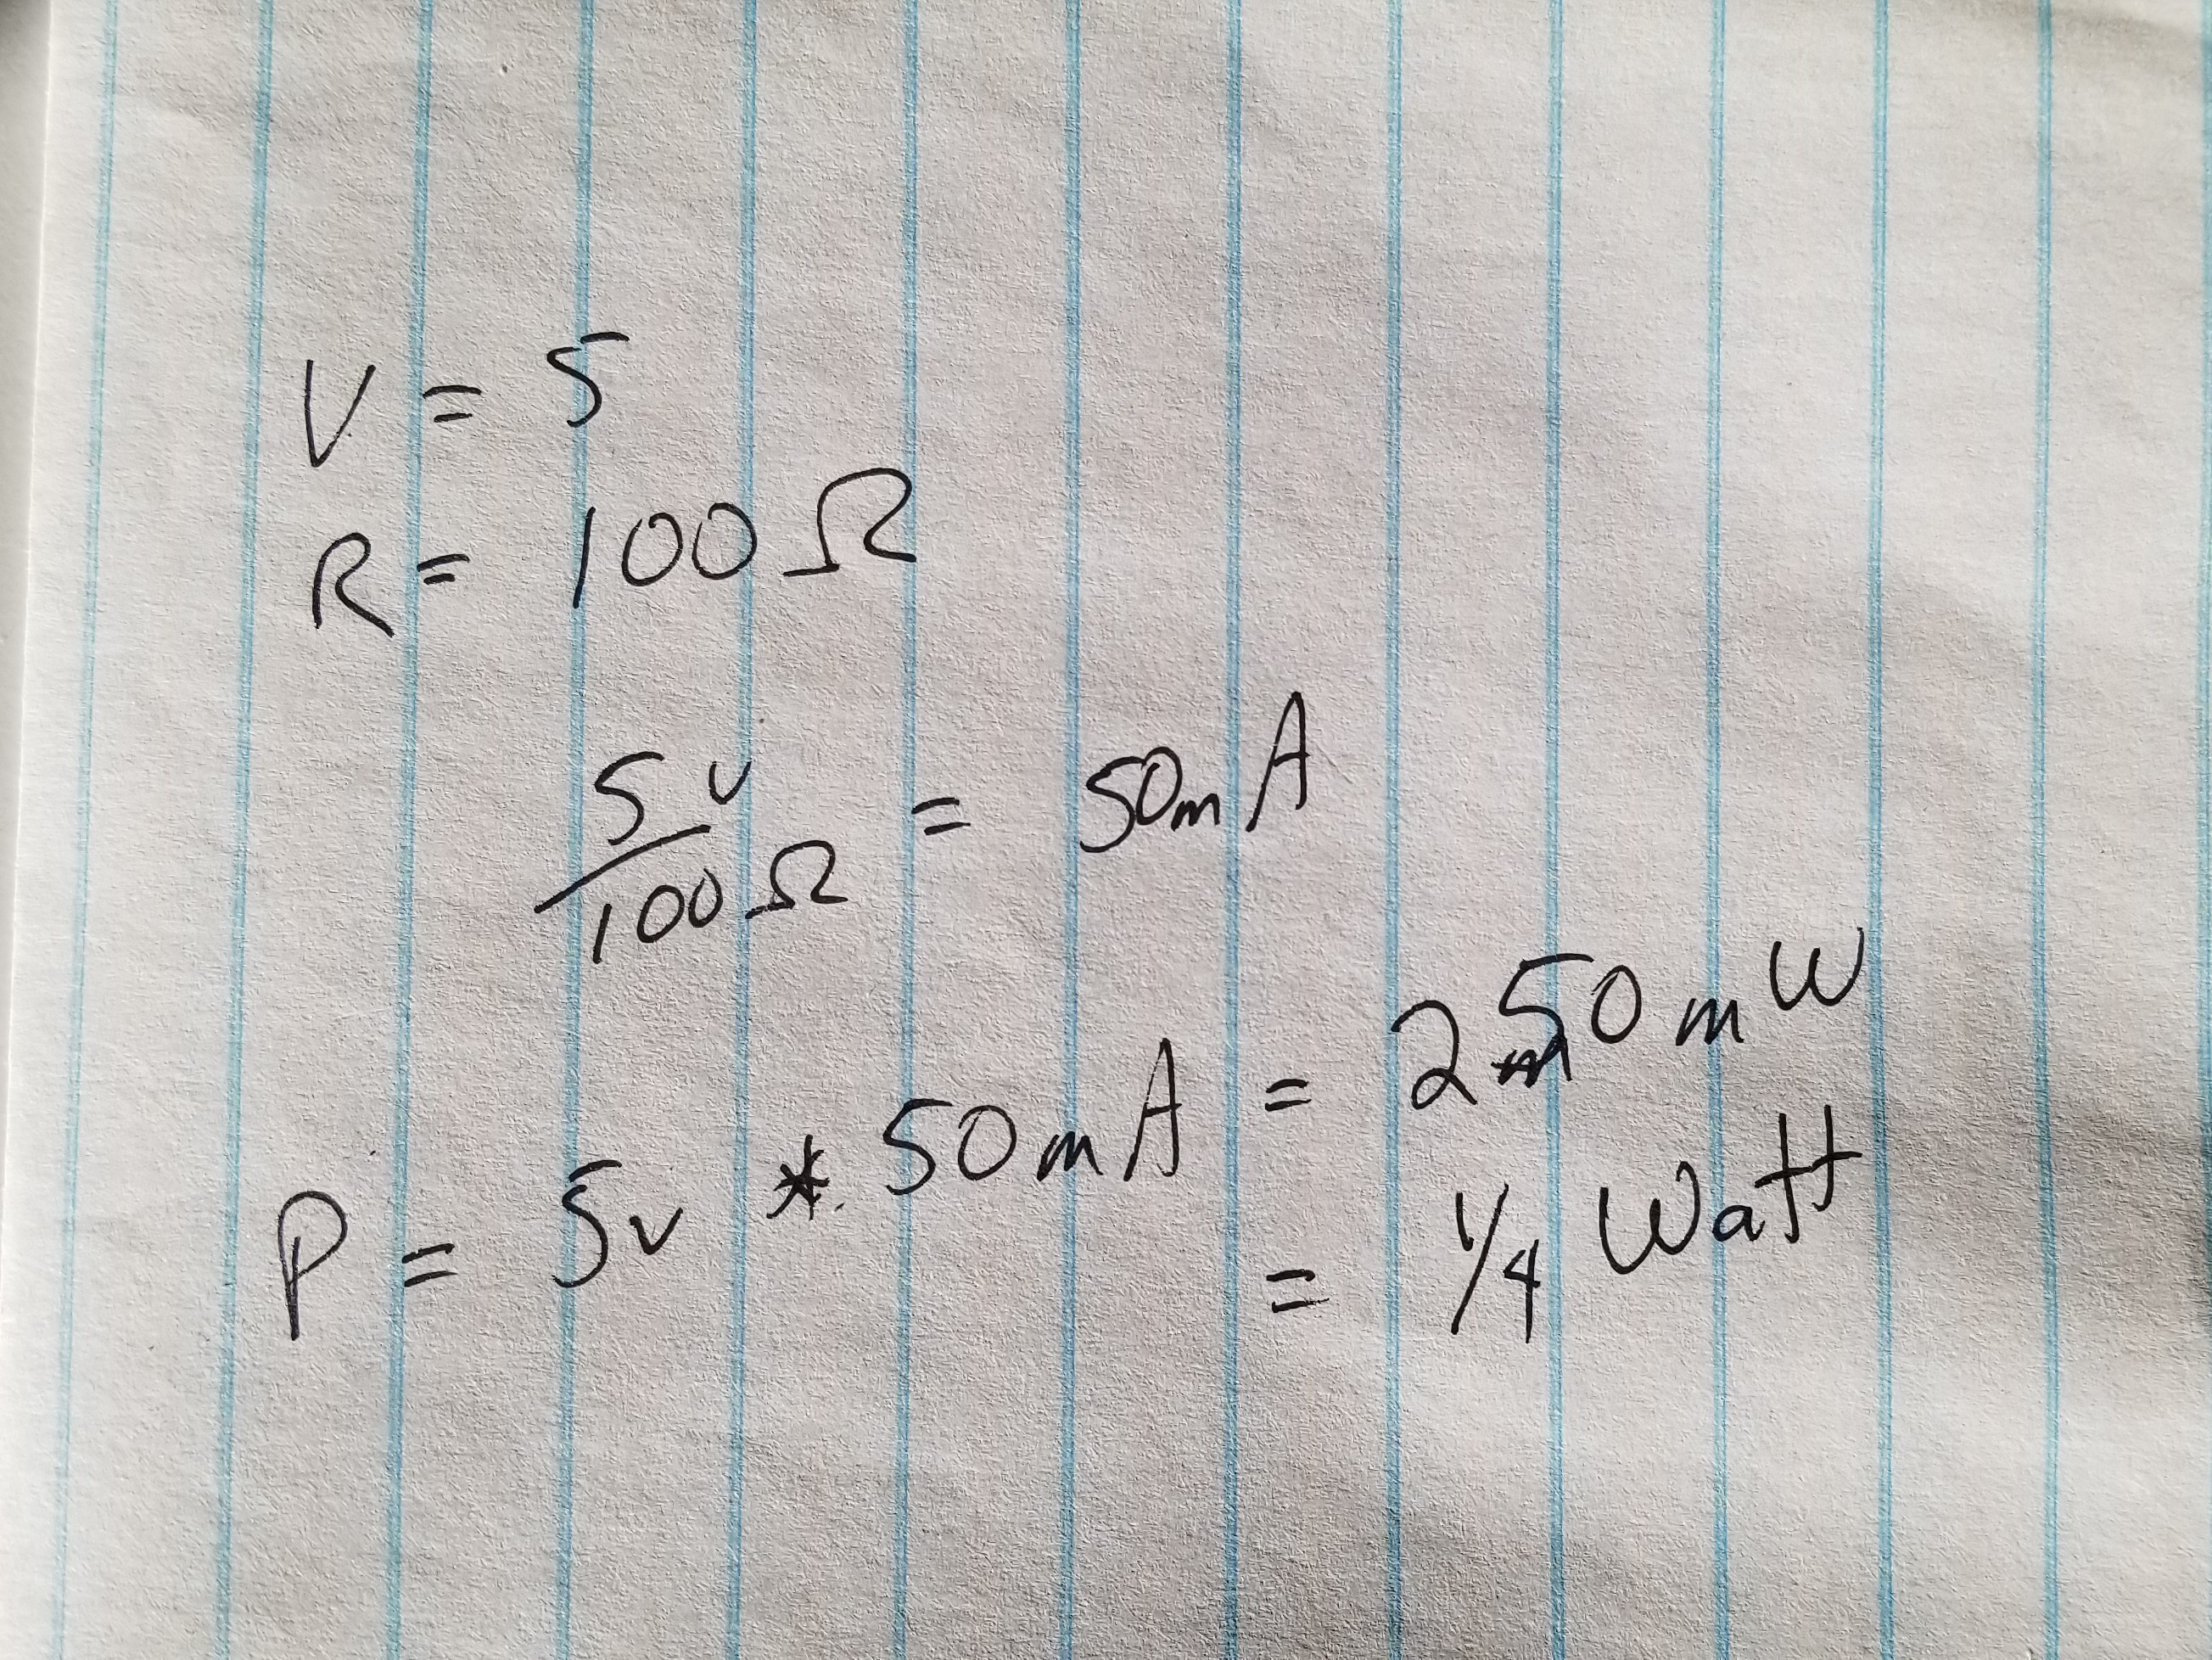 V = 5
R = 100 Ω
5 v / 100 Ω = 50mA
P = 5v * 50mA = 250 mW
= 1/4 Watt